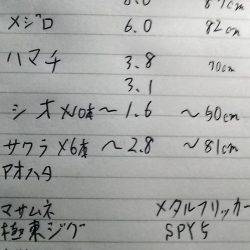 8.0 87cm
メジロ 6.0 82cm
ハマチ 3.8 70cm
3.1
シオ×10本 ～1.6 ～50cm
サワラ×6本 ～2.8 ～81cm
アオハタ
マサムネ メタルフリッカー
極東ジグ SPY5